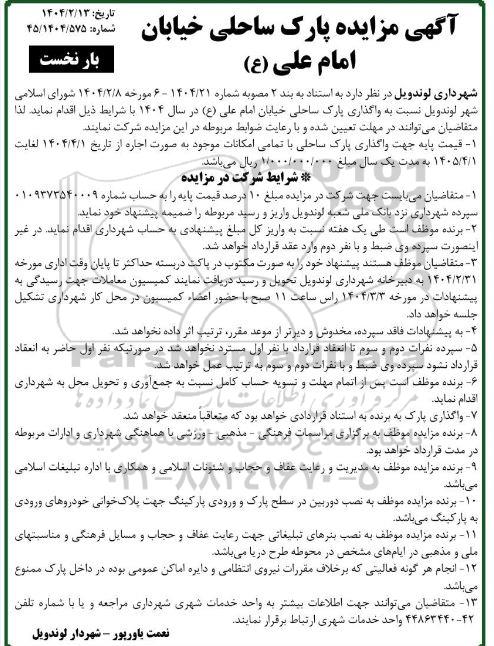 تاریخ: ۱۴۰۴/۲/۱۳
شماره: ۴۵/۱۴۰۴/۵۷۵
بار نخست
آگهی مزایده پارک ساحلی خیابان
امام علی (ع)
شهرداری لوندویل در نظر دارد به استناد به بند ۲ مصوبه شماره ۱۴۰۴/۲۱ - ۶ مورخه ۱۴۰۴/۲/۸ شورای اسلامی
شهر لوندویل نسبت به واگذاری پارک ساحلی خیابان امام علی (ع) در سال ۱۴۰۴ با شرایط ذیل اقدام نماید. لذا
متقاضیان می‌توانند در مهلت تعیین شده و با رعایت ضوابط مربوطه در این مزایده شرکت نمایند.
۱- قیمت پایه جهت واگذاری پارک ساحلی با تمامی امکانات موجود به صورت اجاره از تاریخ ۱۴۰۴/۴/۱ لغایت
۱۴۰۵/۴/۱ به مدت یک سال مبلغ ۱/۰۰۰/۰۰۰/۰۰۰ ریال می‌باشد.
* شرایط شرکت در مزایده
۱- متقاضیان می‌بایست جهت شرکت در مزایده مبلغ ۱۰ درصد قیمت پایه را به حساب شماره ۰۱۰۹۳۷۳۵۴۰۰۰۹
سپرده شهرداری نزد بانک ملی شعبه لوندویل واریز و رسید مربوطه را ضمیمه پیشنهاد خود نماید.
۲- برنده موظف است طی یک هفته نسبت به واریز کل مبلغ پیشنهادی به حساب شهرداری اقدام نماید. در غیر
اینصورت سپرده وی ضبط و با نفر دوم وارد عقد قرارداد خواهد شد.
۳- متقاضیان موظف هستند پیشنهاد خود را به صورت مکتوب در پاکت دربسته حداکثر تا پایان وقت اداری مورخه
۱۴۰۴/۲/۳۱ به دبیرخانه شهرداری لوندویل تحویل و رسید دریافت نمایند کمیسیون معاملات جهت رسیدگی به
پیشنهادات در مورخه ۱۴۰۴/۳/۳ راس ساعت ۱۱ صبح با حضور اعضاء کمیسیون در محل کار شهرداری تشکیل
جلسه خواهد داد.
۴- به پیشنهادات فاقد سپرده، مخدوش و دیرتر از موعد مقرر، ترتیب اثر داده نخواهد شد.
۵- سپرده نفرات دوم و سوم تا انعقاد قرارداد با نفر اول مسترد نخواهد شد در صورتیکه نفر اول حاضر به انعقاد
قرارداد نشود سپرده وی ضبط و با نفرات دوم و سوم به ترتیب عمل خواهد شد.
۶- برنده موظف است پس از اتمام مهلت و تسویه حساب کامل نسبت به جمع‌آوری و تحویل محل به شهرداری
اقدام نماید.
۷- واگذاری پارک به برنده به استناد قراردادی خواهد بود که متعاقباً منعقد خواهد شد.
۸- برنده مزایده موظف به برگزاری مراسمات فرهنگی - مذهبی - ورزشی با هماهنگی شهرداری و ادارات مربوطه
در مدت قرارداد خواهد بود.
۹- برنده مزایده موظف به مدیریت و رعایت عفاف و حجاب و شئونات اسلامی و همکاری با اداره تبلیغات اسلامی
می‌باشد.
۱۰- برنده مزایده موظف به نصب دوربین در سطح پارک و ورودی پارکینگ جهت پلاک‌خوانی خودروهای ورودی
به پارکینگ می‌باشد.
۱۱- برنده مزایده موظف به نصب بنرهای تبلیغاتی جهت رعایت عفاف و حجاب و مسایل فرهنگی و مناسبتهای
ملی و مذهبی در ایام‌های مشخص در محوطه طرح دریا می‌باشد.
۱۲- انجام هر گونه فعالیتی که برخلاف مقررات نیروی انتظامی و دایره اماکن عمومی بوده در داخل پارک ممنوع
می‌باشد.
۱۳- متقاضیان می‌توانند جهت اطلاعات بیشتر به واحد خدمات شهری شهرداری مراجعه و یا با شماره تلفن
۴۲-۴۴۸۶۳۴۴۰ واحد خدمات شهری ارتباط برقرار نمایند.
نعمت یاورپور - شهردار لوندویل